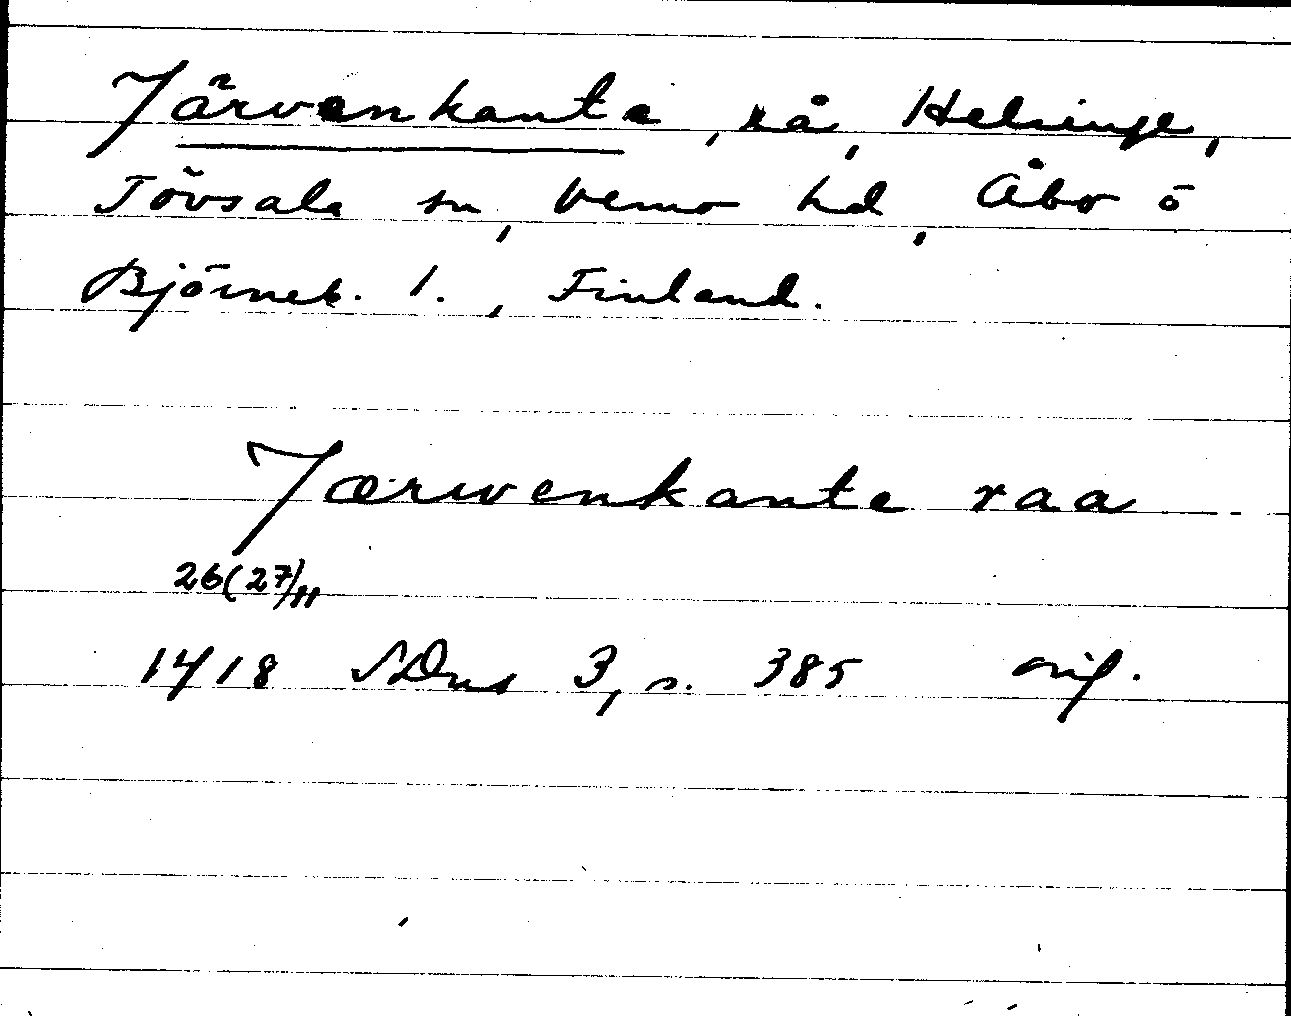 Järvenkante, rå, Helsinge,
Tövsala sn, Vemo hd, Åbo ö
Björneb. l., Finland.
Jærwenkante raa
26(27)/11
1418 SDns 3, s. 385 orig.